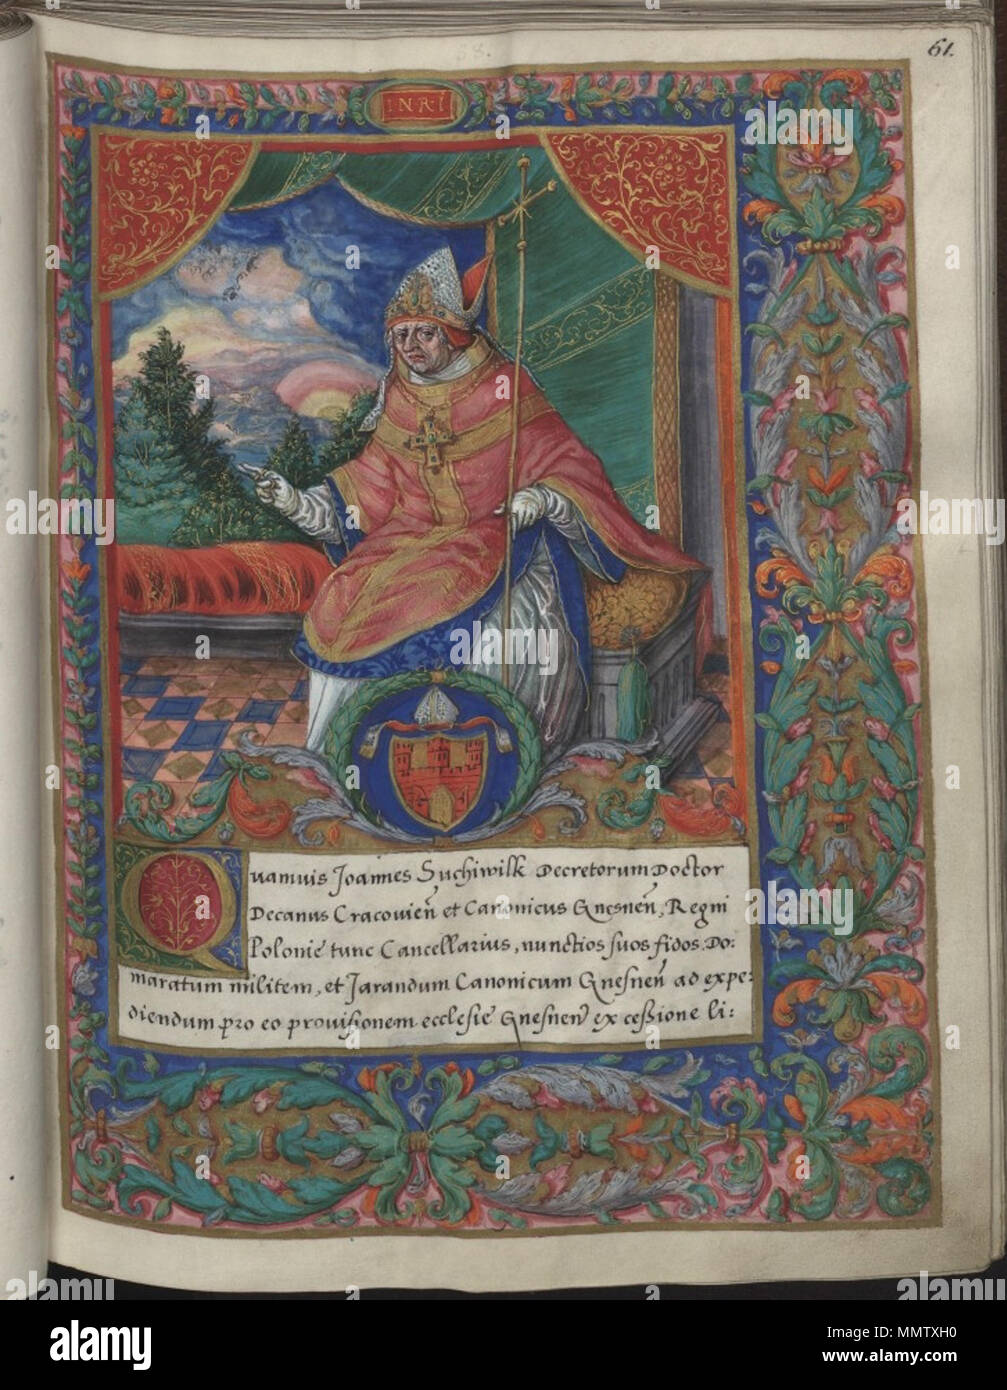 61.
58.
INRI
Quamuis Joannes Suchiwilk Decretorum Doctor
Decanus Cracouień et Canonicus Gnesneń, Regni
Polonie tunc Cancellarius, nunctios suos fidos. Do:
maratum militem, et Jarandum Canonicum Gnesneń ad expe:
diendum pro eo prouisionem ecclesie Gnesneń ex cessione li:
alamy
alamy
Image ID: MMTXH0
www.alamy.com